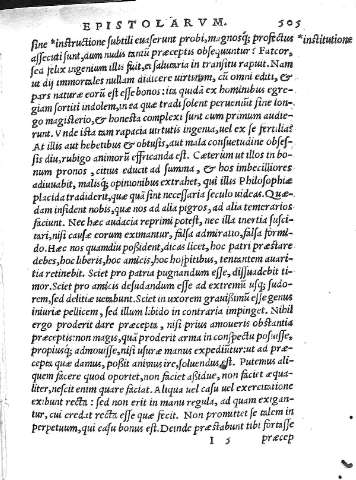 EPISTOLARVM. 505
sine *instructione subtili euaserunt probi, magnosq; profectus *institutione
assecuti sunt, dum nudis tantū præceptis obsequuntur? Fateor,
sed felix ingenium illis fuit, et salutaria in transitu rapuit. Nam
ut dij immortales nullam didicere uirtutem, cū omni editi, &
pars naturæ eorū est esse bonos: ita quidā ex hominibus egre-
giam sortiti indolem, in ea quæ tradi solent perueniūt sine lon-
go magisterio, & honesta complexi sunt cum primum audie-
runt. Vnde ista tam rapacia uirtutis ingenia, uel ex se fertilia?
At illis aut hebetibus & obtusis, aut mala consuetudine obses-
sis diu, rubigo animorū effricanda est. Cæterum ut illos in bo-
num pronos, citius educit ad summa, & hos imbecilliores
adiuuabit, malisq; opinionibus extrahet, qui illis Philosophiæ
placita tradiderit, quæ quā sint necessaria sic uideas. Quæ-
dam insident nobis, quæ nos ad alia pigros, ad alia temerarios
faciunt. Nec hæc audacia reprimi potest, nec illa inertia susci-
tari, nisi causæ eorum eximantur, falsa admiratio, falsa formi-
do. Hæc nos quamdiu possident, dicas licet, hoc patri præstare
debes, hoc liberis, hoc amicis, hoc hospitibus, tentantem auari-
tia retinebit. Sciet pro patria pugnandum esse, dissuadebit ti-
mor. Sciet pro amicis desudandum esse ad extremū usq; sudo-
rem, sed delitiæ uetabunt. Sciet in uxorem grauissimū esse genus
iniuriæ pellicem, sed illum libido in contraria impinget. Nihil
ergo proderit dare præcepta, nisi prius amoueris obstantia
præceptis: non magis, quā proderit arma in conspectu posuisse,
propiusq; admouisse, nisi usuræ manus expediūtur: ut ad præ-
cepta quæ damus, possit animus ire, soluendus est. Putemus ali-
quem facere quod oportet, non faciet assidue, non faciet æqua-
liter, nesciet enim quare faciat. Aliqua uel casu uel exercitatione
exibunt recta: sed non erit in manu regula, ad quam exigan-
tur, cui credat recta esse quæ fecit. Non promittet se talem in
perpetuum, qui casu bonus est. Deinde præstabunt tibi fortasse
I 5 præcep